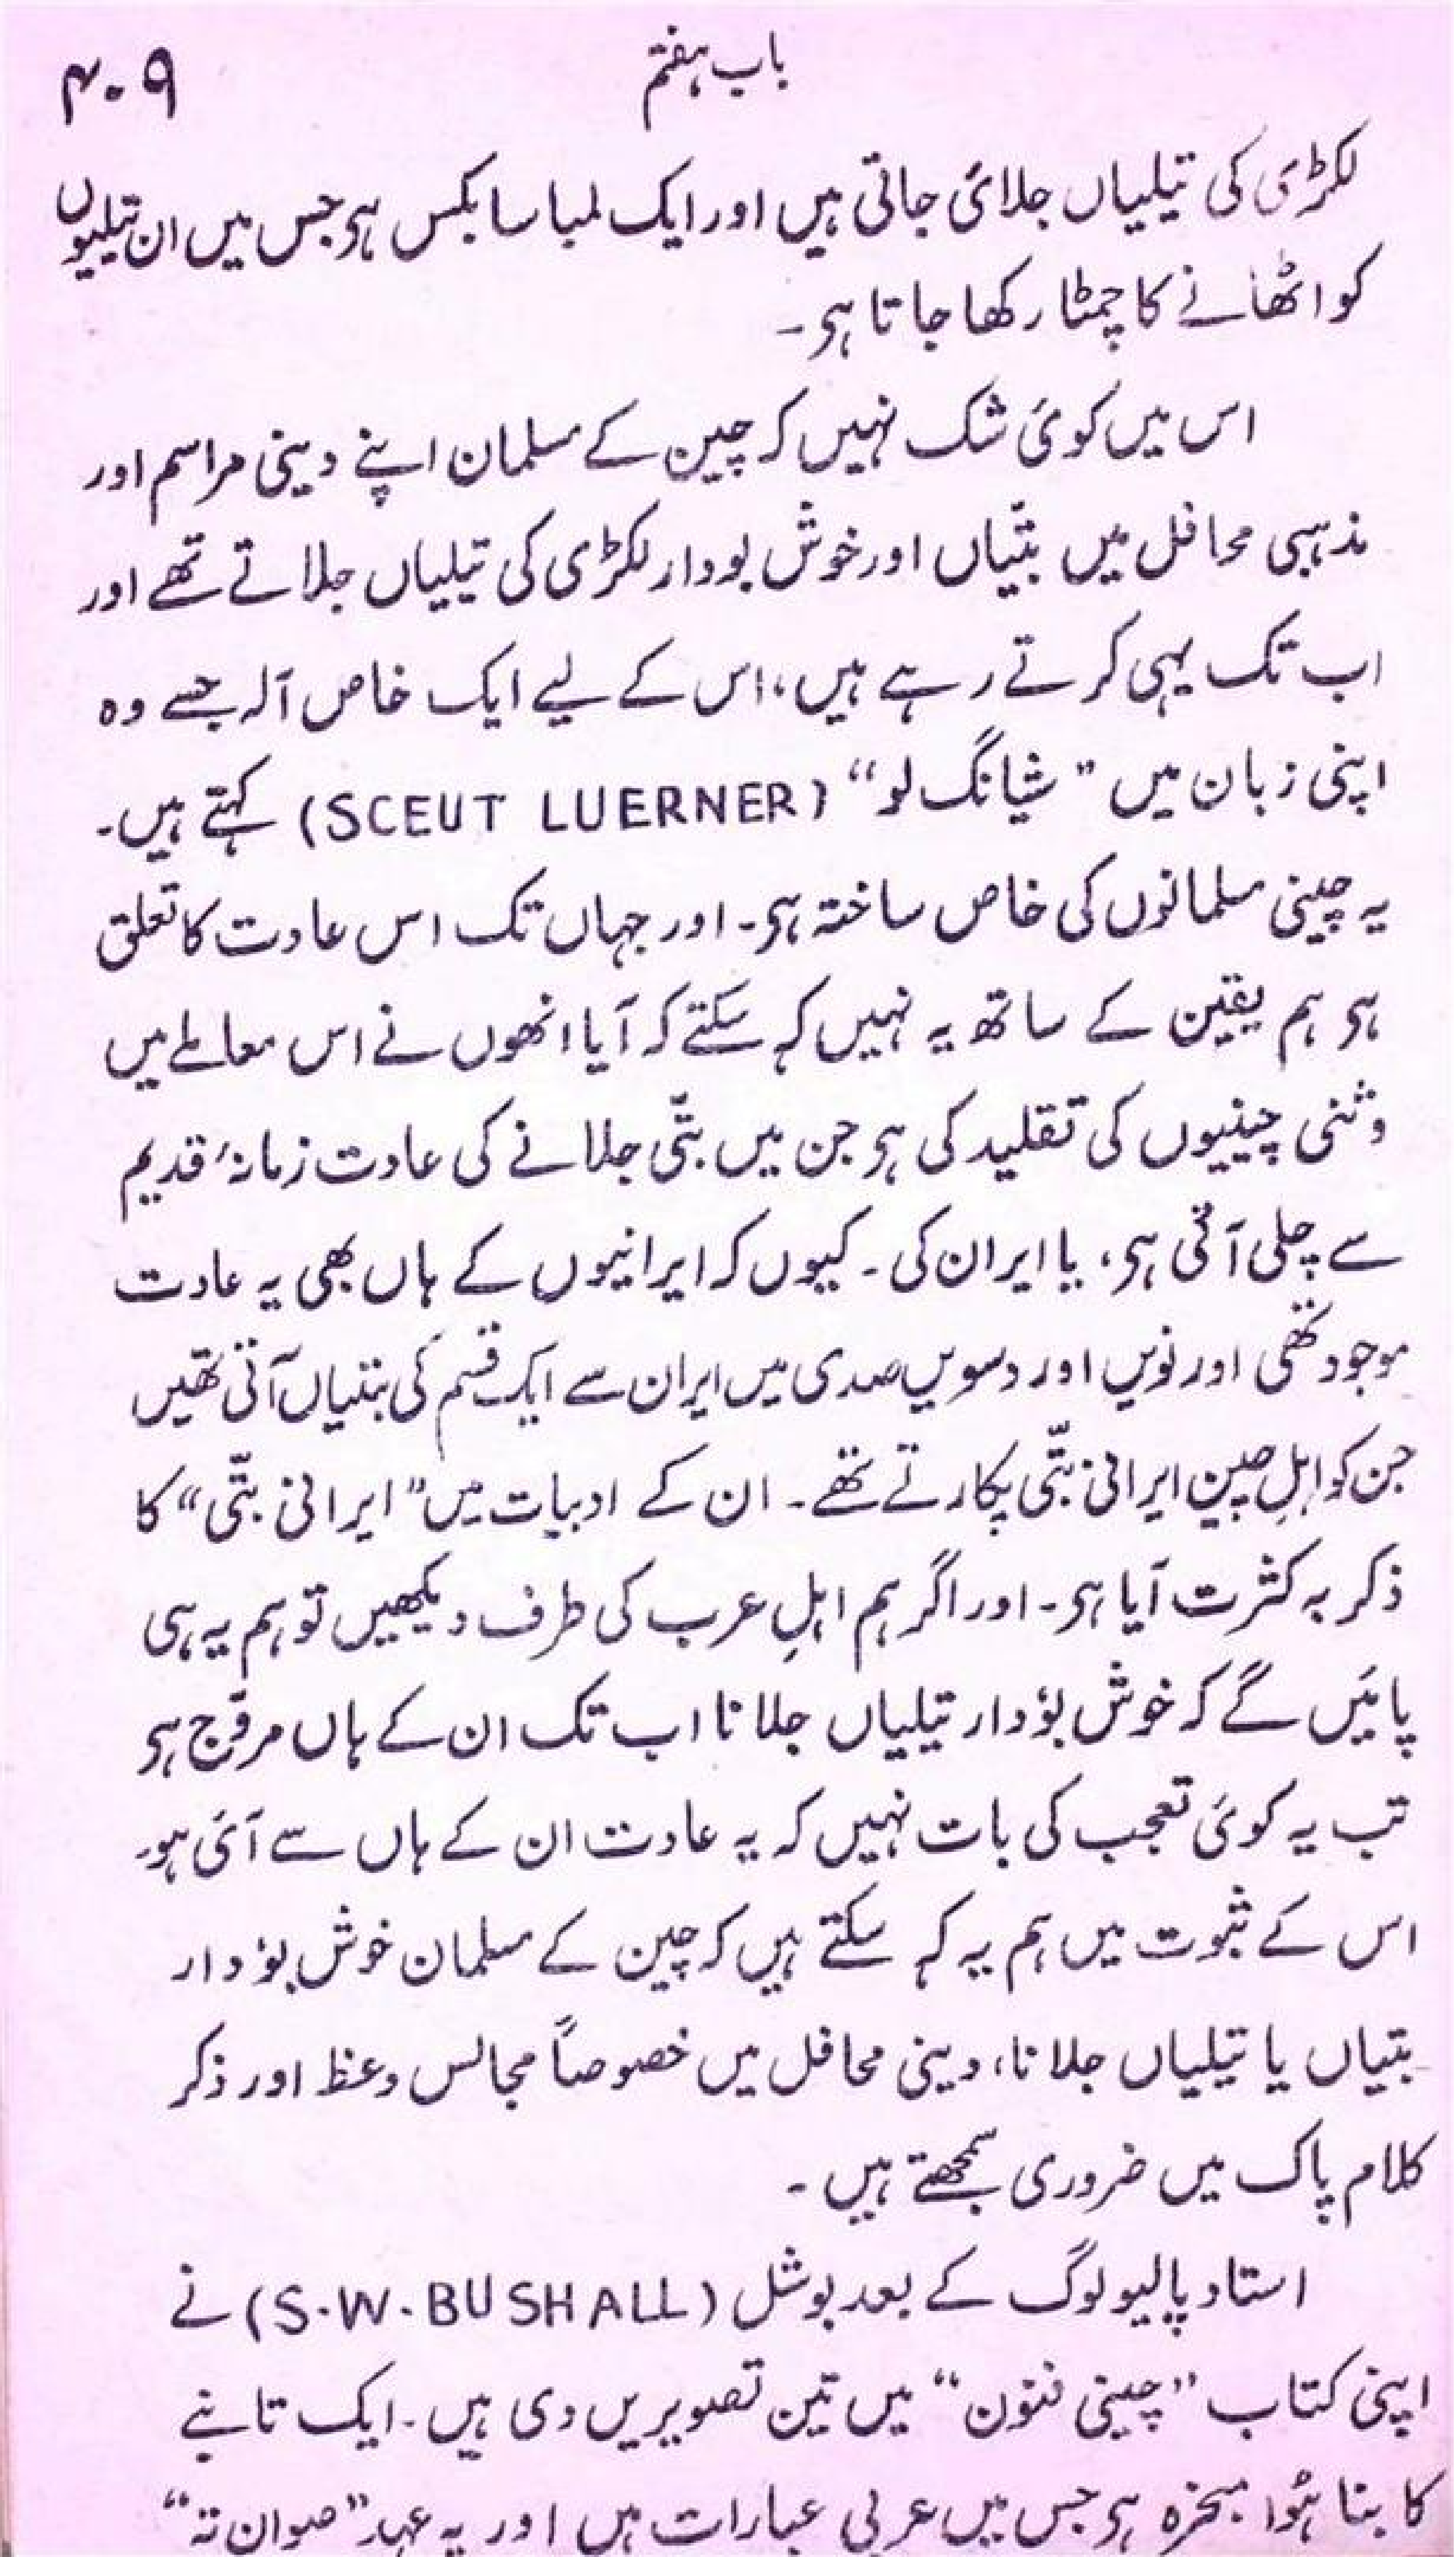 باب ہفتم ۴۰۹
لکڑی کی تیلیاں جلائی جاتی ہیں اور ایک لمبا سا بکس ہی جس میں ان تیلیوں
کو اٹھانے کا چمٹا رکھا جاتا ہی ۔
اس میں کوئی شک نہیں کہ چین کے مسلمان اپنے دینی مراسم اور
مذہبی محافل میں بتّیاں اور خوش بودار لکڑی کی تیلیاں جلاتے تھے اور
اب تک یہی کرتے رہے ہیں، اس کے لیے ایک خاص آلہ جسے وہ
اپنی زبان میں ”شیانگ لو“ (SCEUT LUERNER) کہتے ہیں۔
یہ چینی مسلمانوں کی خاص ساختہ ہی۔ اور جہاں تک اس عادت کا تعلق
ہی ہم یقین کے ساتھ یہ نہیں کہ سکتے کہ آیا انھوں نے اس معاملے میں
وثنی چینیوں کی تقلید کی ہی جن میں بتّی جلانے کی عادت زمانۂ قدیم
سے چلی آتی ہی، یا ایران کی ۔ کیوں کہ ایرانیوں کے ہاں بھی یہ عادت
موجود تھی اور نویں اور دسویں صدی میں ایران سے ایک قسم کی بتیاں آتی تھیں
جن کو اہلِ چین ایرانی بتّی پکارتے تھے ۔ ان کے ادبیات میں ”ایرانی بتّی“ کا
ذکر بہ کثرت آیا ہی۔ اور اگر ہم اہلِ عرب کی طرف دیکھیں تو ہم یہ ہی
پائیں گے کہ خوش بؤدار تیلیاں جلانا اب تک ان کے ہاں مروّج ہی
تب یہ کوئی تعجب کی بات نہیں کہ یہ عادت ان کے ہاں سے آئی ہو۔
اس کے ثبوت میں ہم یہ کہ سکتے ہیں کہ چین کے مسلمان خوش بؤدار
بتیاں یا تیلیاں جلانا، دینی محافل میں خصوصاً مجالس وعظ اور ذکر
کلام پاک میں ضروری سمجھتے ہیں ۔
استاد پالیولوگ کے بعد بوشل (S.W.BUSHALL) نے
اپنی کتاب ”چینی فنون“ میں تین تصویریں دی ہیں۔ ایک تانبے
کا بنا ہُوا مبخرہ ہی جس میں عربی عبارات ہیں اور یہ عہد ”صوان تہ“